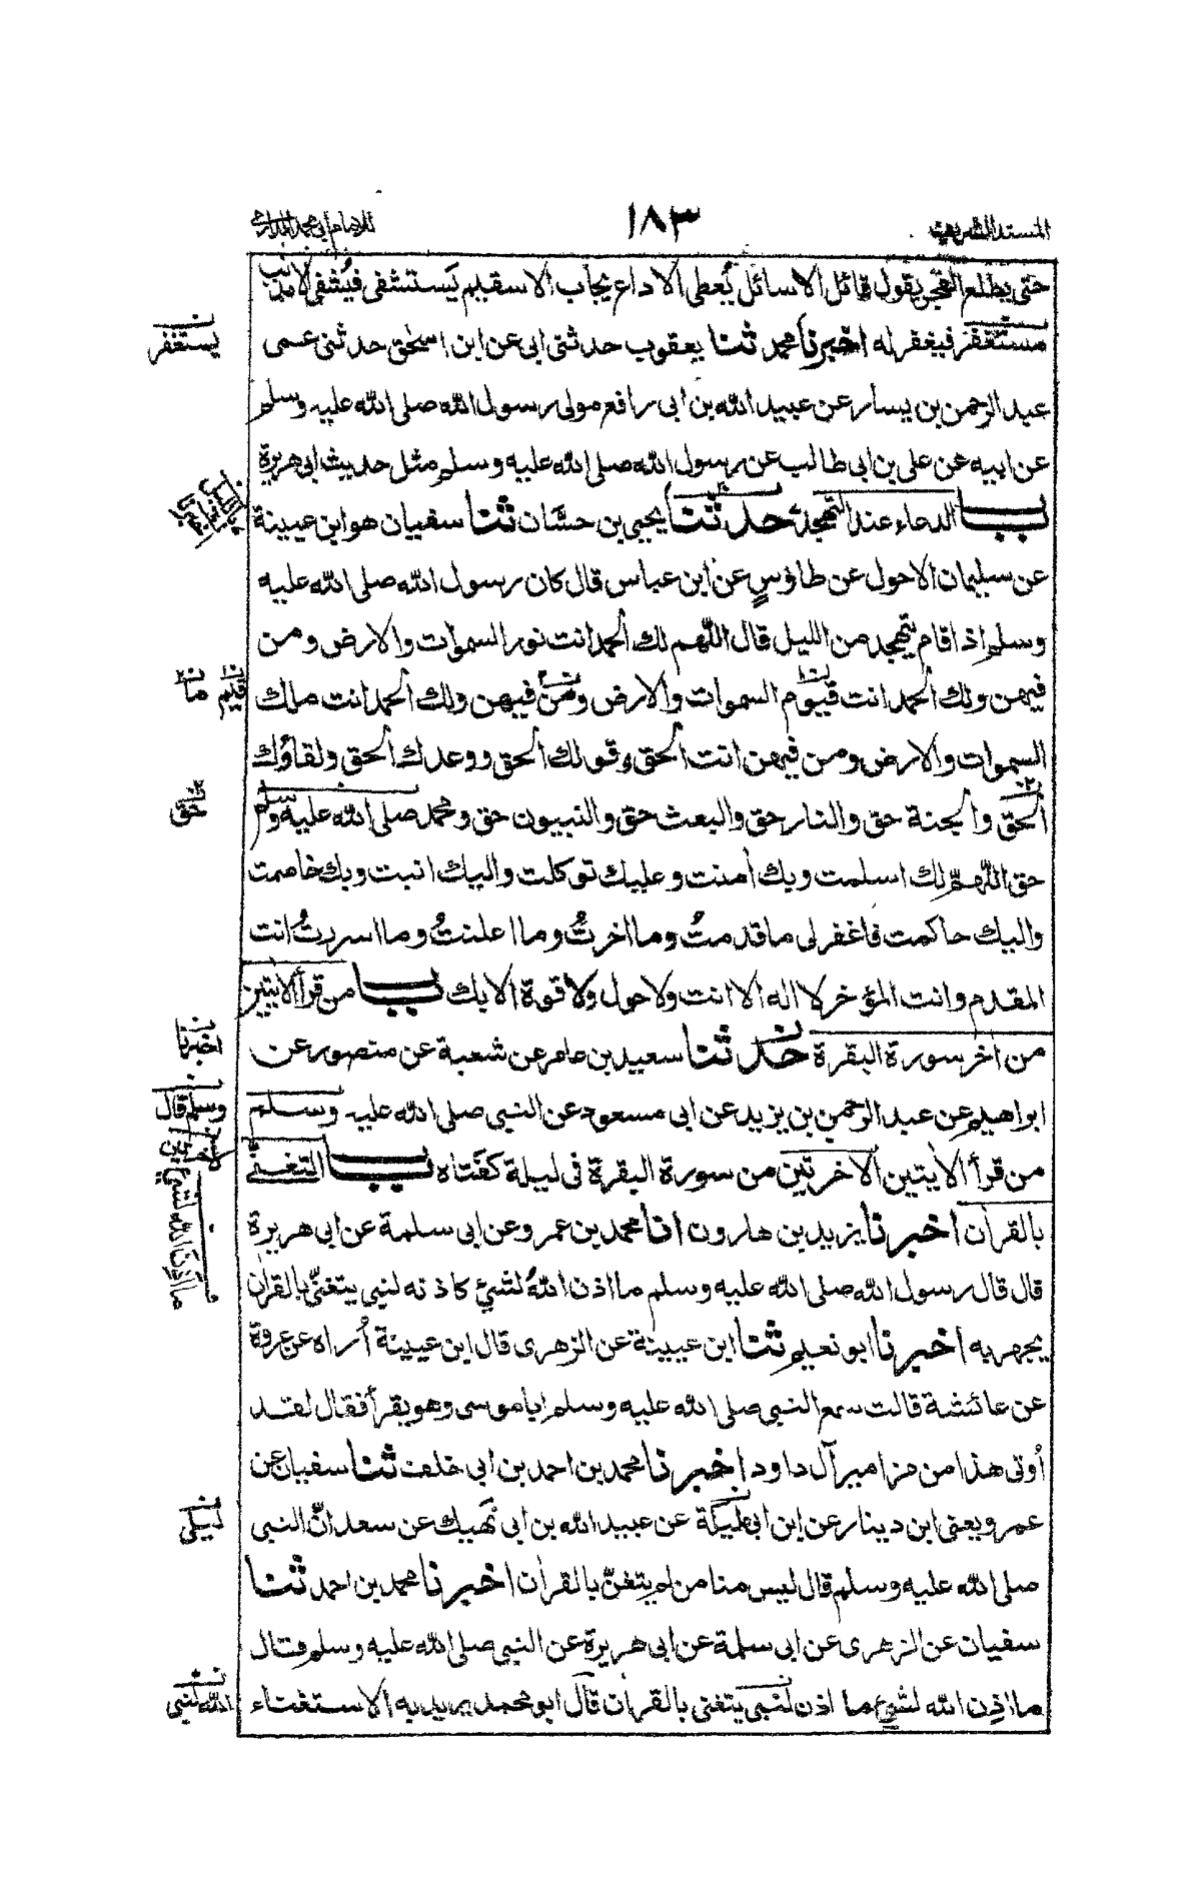 المسند الشريف ١٨٣ للامام ابي محمد الدارمي
حتى يطلع الفجر يقول قائل الا سائل يُعطى الا داع يجاب الا سقيم يَستشفى فيُشفى الا مذنب
مستغفر فيغفر له اخبرنا محمد ثنا يعقوب حدثنى ابى عن ابن اسحٰق حدثنى عمى
عبد الرحمن بن يسار عن عبيد الله بن ابى رافع مولى رسول الله صلى الله عليه وسلم
عن ابيه عن على بن ابى طالب عن رسول الله صلى الله عليه وسلم مثل حديث ابى هريرة
باب الدعاء عند التهجد حدثنا يحيى بن حسَّان ثنا سفيان هو ابن عيينة
عن سليمان الاحول عن طاؤسٍ عن ابن عباس قال كان رسول الله صلى الله عليه
وسلم اذا قام يتهجد من الليل قال اللّٰهم لك الحمد انت نور السموات والارض ومن
فيهن ولك الحمد انت قيوم السموات والارض ومن فيهن ولك الحمد انت ملك
السموات والارض ومن فيهن انت الحق وقولك الحق ووعدك الحق ولقاؤك
الحق والجنة حق والنار حق والبعث حق والنبيون حق ومحمد صلى الله عليه وسلم
حق اللّٰهم لك اسلمت وبك اٰمنت وعليك توكلت واليك انبت وبك خاصمت
واليك حاكمت فاغفر لى ما قدمتُ وما اخرتُ وما اعلنتُ وما اسررتُ انت
المقدم وانت المؤخر لا اله الا انت ولا حول ولا قوة الا بك باب من قرأ الاٰيتين
من اٰخر سورة البقرة حدثنا سعيد بن عامر عن شعبة عن منصور عن
ابراهيم عن عبد الرحمن بن يزيد عن ابى مسعود عن النبى صلى الله عليه وسلم
من قرأ الاٰيتين الاخرتين من سورة البقرة فى ليلة كفَتاه باب التغنى
بالقراٰن اخبرنا يزيد بن هارون انا محمد بن عمرو عن ابى سلمة عن ابى هريرة
قال قال رسول الله صلى الله عليه وسلم ما اذن اللهُ لشئٍ كاذنه لنبى يتغنّى بالقراٰن
يجهر به اخبرنا ابو نعيم ثنا ابن عيينة عن الزهرى قال ابن عيينة أُراه عن عروة
عن عائشة قالت سمع النبى صلى الله عليه وسلم ابا موسى وهو يقرأ فقال لقد
أوتى هذا من مزامير آل داود اخبرنا محمد بن احمد بن ابى خلف ثنا سفيان عن
عمرو يعنى ابن دينار عن ابن ابى مليكة عن عبيد الله بن ابى نَهيك عن سعد انّ النبى
صلى الله عليه وسلم قال ليس منا من لم يتغنّ بالقراٰن اخبرنا محمد بن احمد ثنا
سفيان عن الزهرى عن ابى سلمة عن ابى هريرة عن النبى صلى الله عليه وسلم قال
ما اَذِن الله لشئ ما اذن لنبى يتغنى بالقراٰن قال ابو محمد يريد به الاستغناء
يستغفر
قيم
حق
اخبرنا
وسلم قال
ما اَذِنَ الله لشئ
الله لنبى